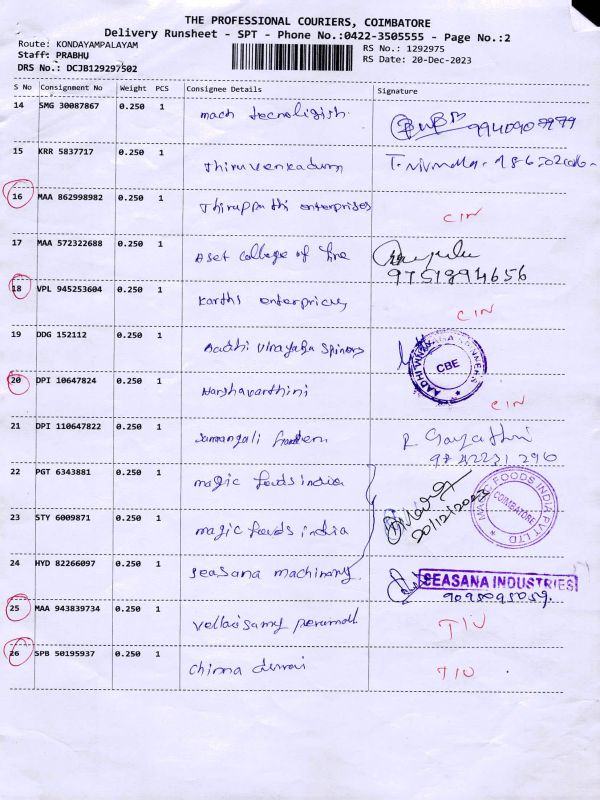 THE PROFESSIONAL COURIERS, COIMBATORE
Delivery Runsheet - SPT - Phone No.:0422-3505555 - Page No.:2
Route: KONDAYAMPALAYAM
Staff: PRABHU
DRS No.: DCJB129297502
RS No.: 1292975
RS Date: 20-Dec-2023
S No Consignment No Weight PCS Consignee Details Signature
14 SMG 30087867 0.250 1 mach tecnoligish
15 KRR 5837717 0.250 1 Thiruvenkadum
16 MAA 862998982 0.250 1 Thiruppathi enterprises CIN
17 MAA 572322688 0.250 1 Aset college of fine
9751894656
18 VPL 945253604 0.250 1 Karthi enterprices CIN
19 DDG 152112 0.250 1 Aadhi vinayaga spiners
AADHI VINAYAGA SPINNERS
CBE
20 DPI 10647824 0.250 1 Harshavarthini CIN
21 DPI 110647822 0.250 1 R Gayathri
22 PGT 6343881 0.250 1 magic foods india
MAGIC FOODS INDIA PVT LTD
COIMBATORE
20/12/2023
23 STY 6009871 0.250 1 magic foods india
24 HYD 82266097 0.250 1 Seasana machinary
SEASANA INDUSTRIES
9095095059
25 MAA 943839734 0.250 1 Vellaisamy perumall TIU
26 SPB 50195937 0.250 1 chinna durai TIU